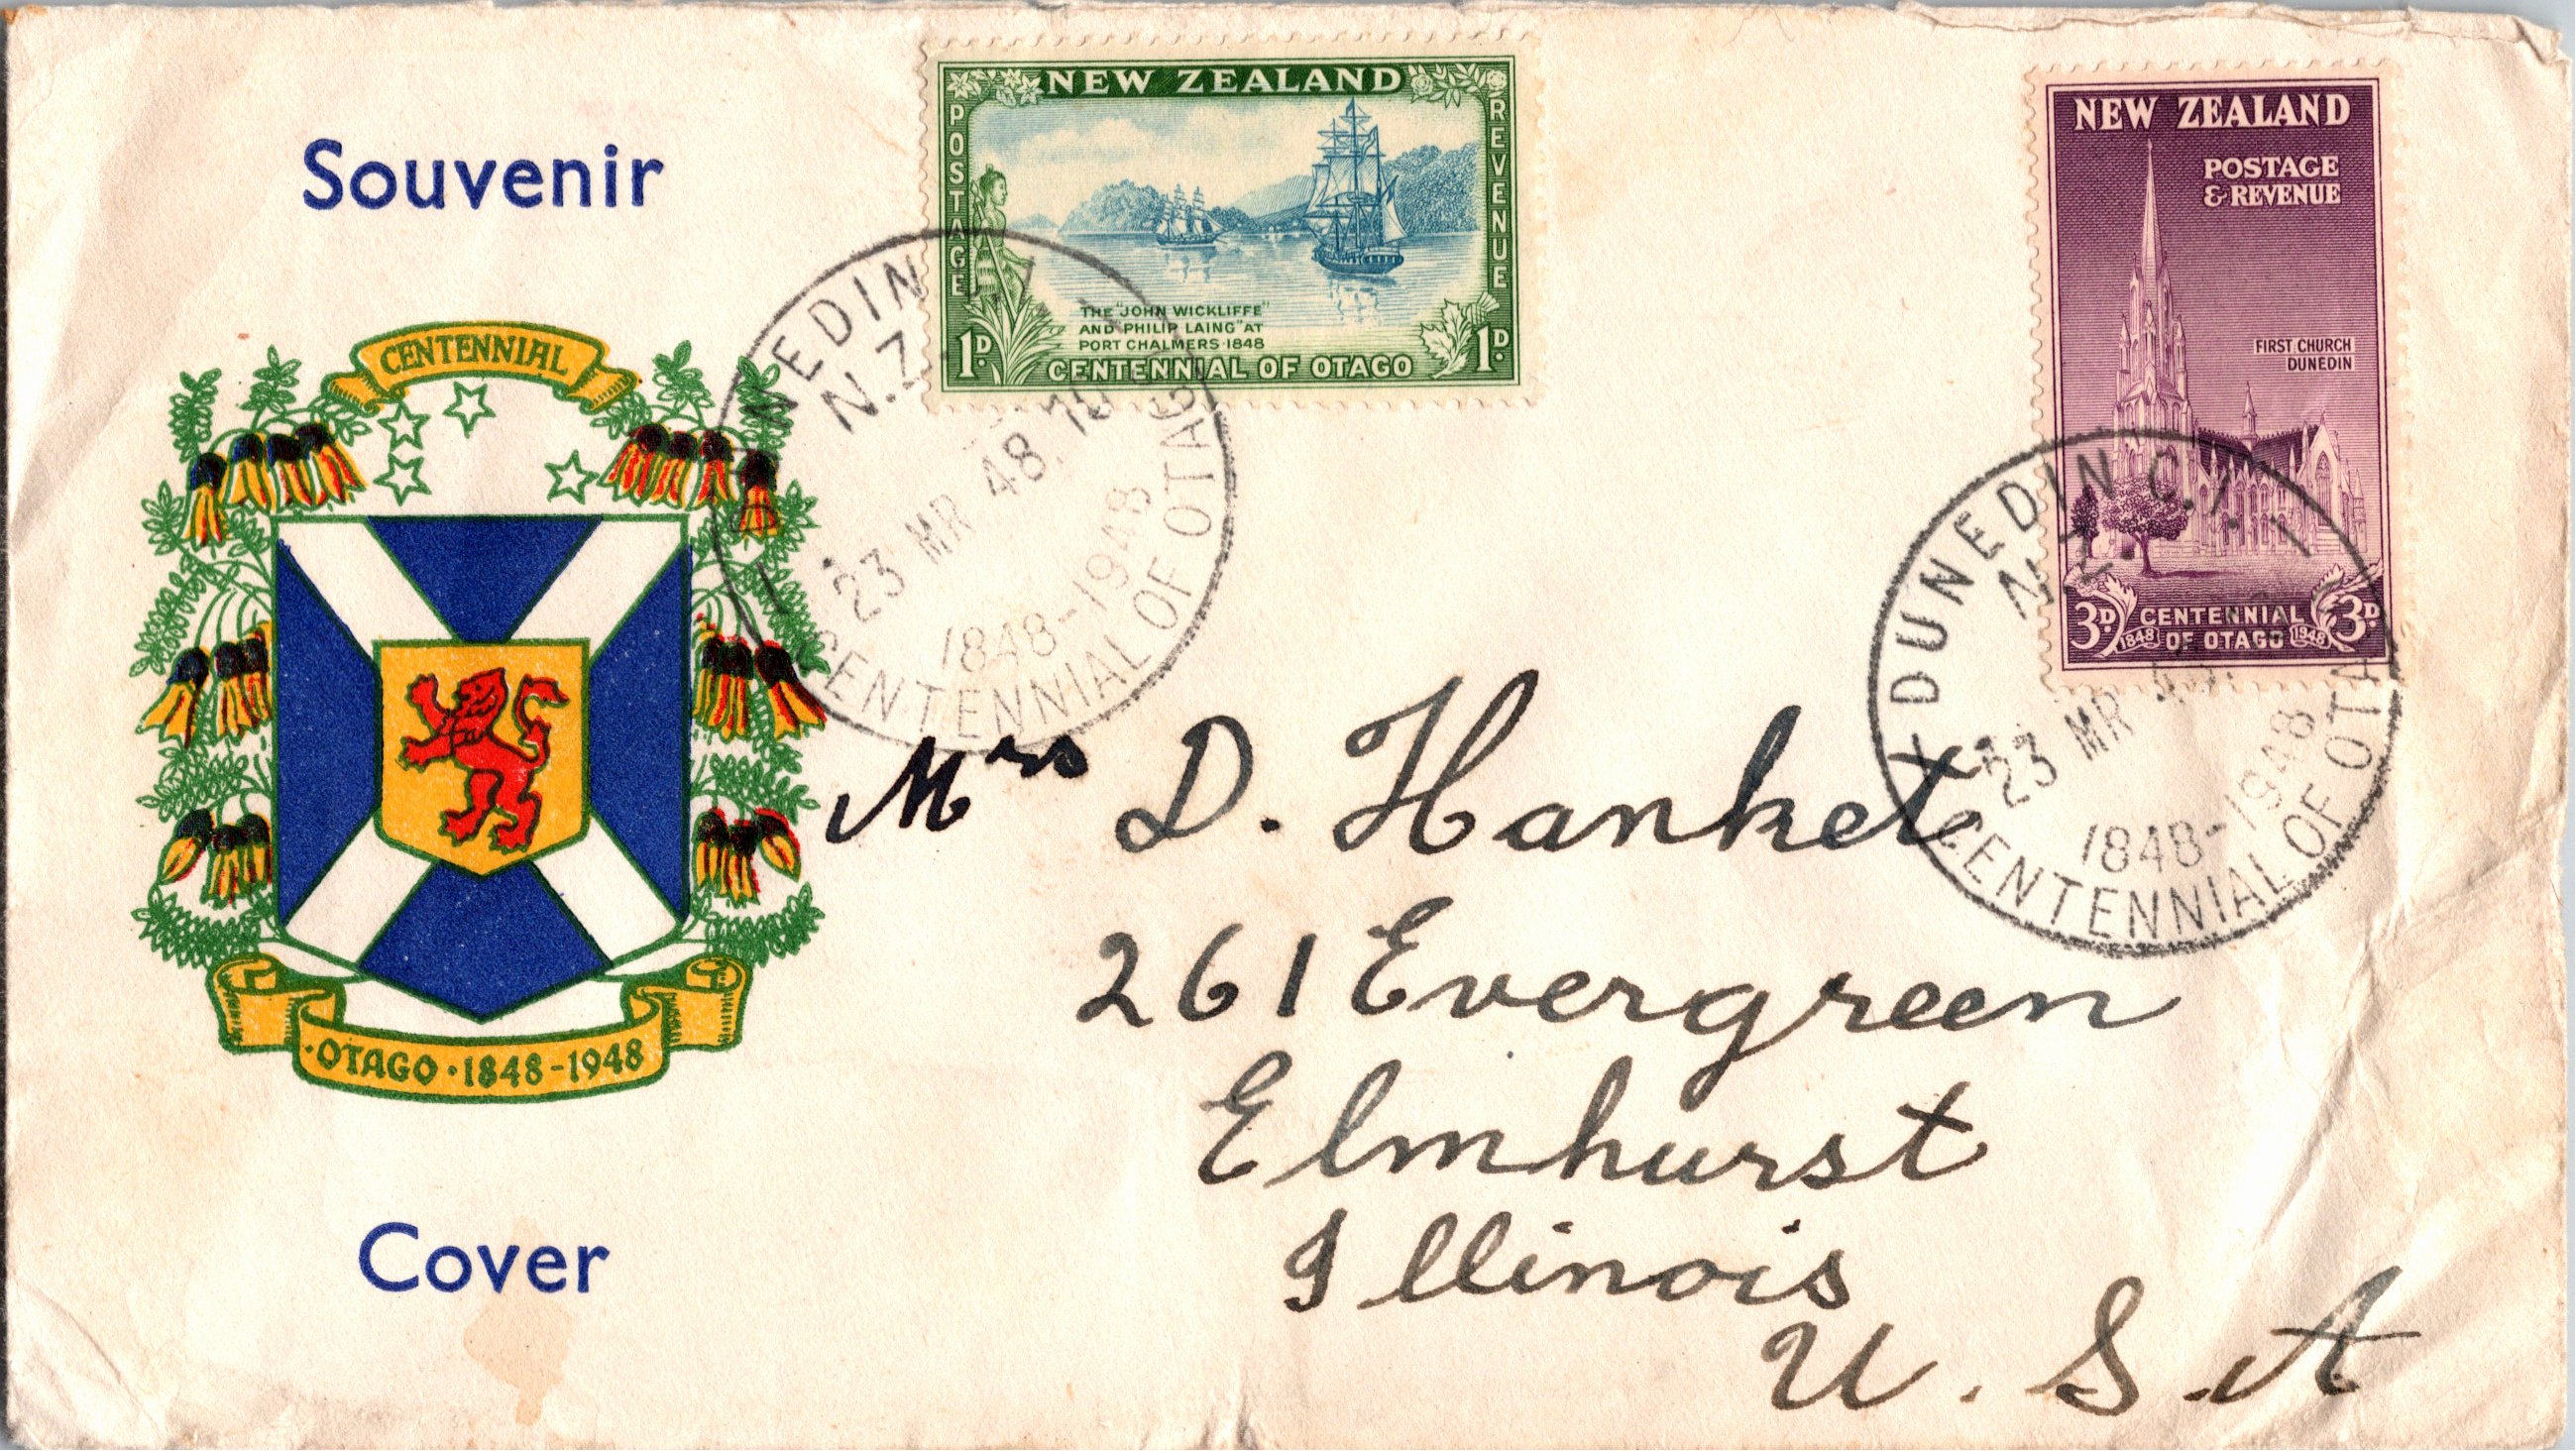 Souvenir
CENTENNIAL
·OTAGO·1848-1948
Cover
NEW ZEALAND
POSTAGE
REVENUE
THE "JOHN WICKLIFFE"
AND PHILIP LAING" AT
PORT CHALMERS·1848
1D. CENTENNIAL OF OTAGO 1D.
NEW ZEALAND
POSTAGE
& REVENUE
FIRST CHURCH
DUNEDIN
3D. CENTENNIAL 3D.
1848 OF OTAGO 1948
DUNEDIN
N.Z.
23 MR 48. 10
1848-1948
CENTENNIAL OF OTAGO
DUNEDIN C.1.
N.Z.
23 MR
1848-1948
CENTENNIAL OF OTA
Mrs D. Hanket
261 Evergreen
Elmhurst
Illinois
U.S.A